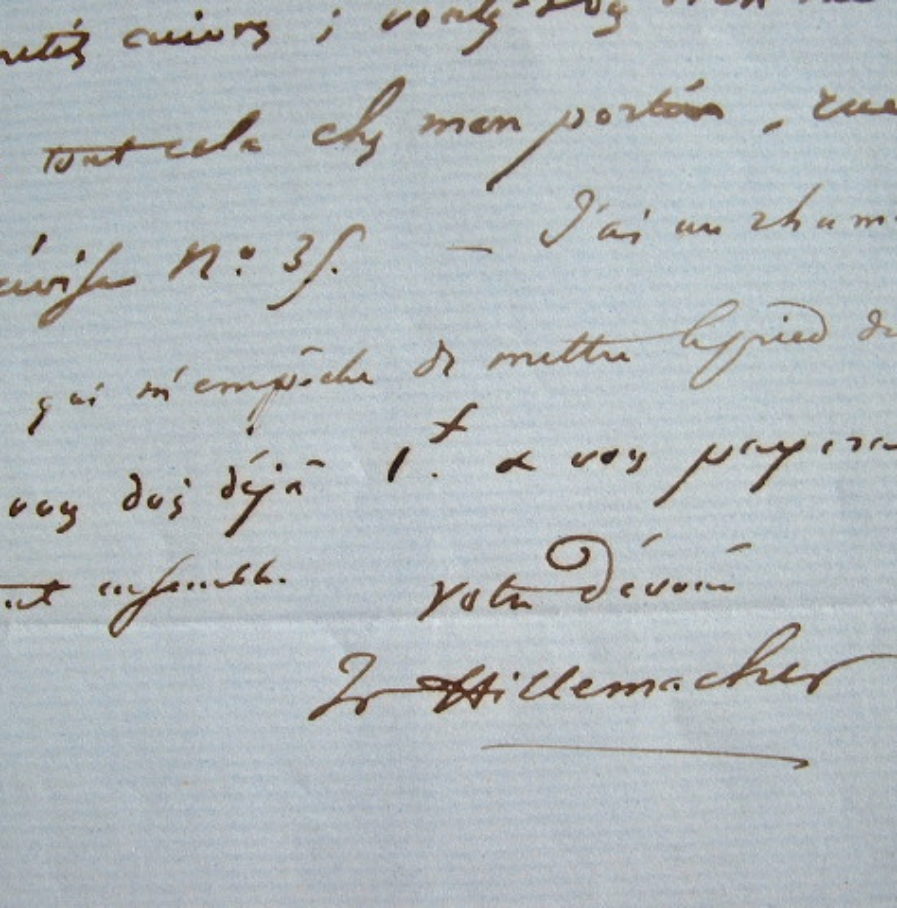 cuivres ; voulez-vous bien me
tout cela chez mon portier, rue
N.o 35. — J'ai un rhume
qui m'empêche de mettre le pied de
vous dois déjà 1.f & vous payerai
tout ensemble.
Votre Dévoué
Fr Hillemacher